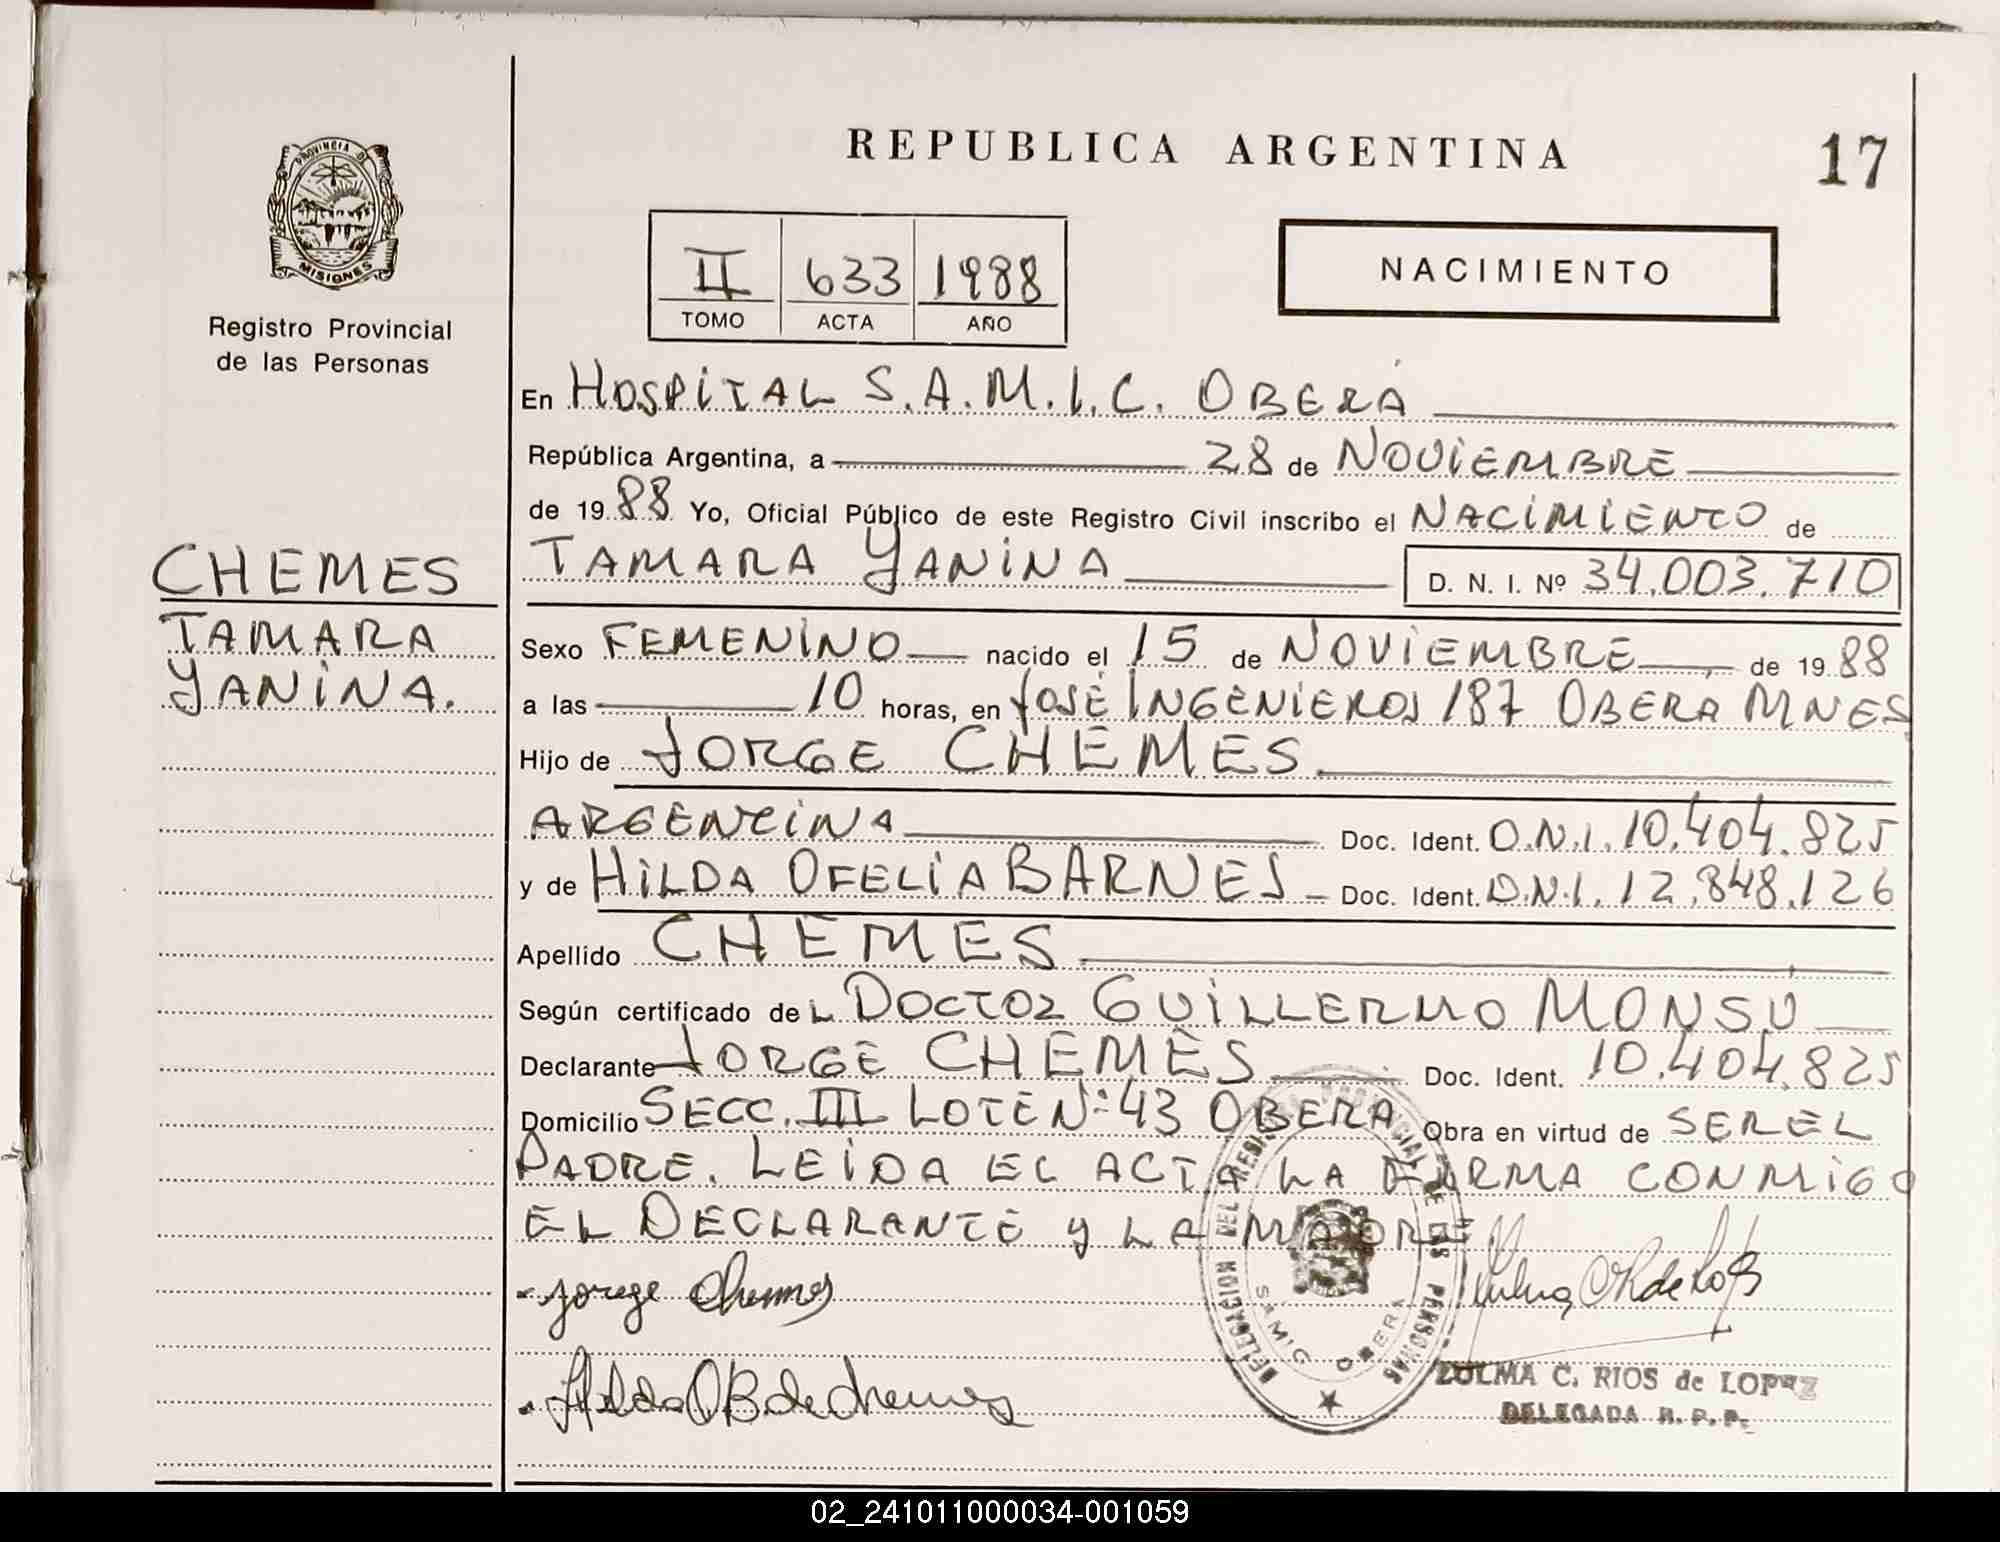 REPUBLICA ARGENTINA
17
PROVINCIA DE
MISIONES
Registro Provincial
de las Personas
II 633 1988
TOMO ACTA AÑO
NACIMIENTO
En HOSPITAL S.A.M.I.C. OBERÁ
República Argentina, a 28 de NOVIEMBRE
de 1988 Yo, Oficial Público de este Registro Civil inscribo el NACIMIENTO de
TAMARA YANINA D. N. I. Nº 34.003.710
CHEMES
TAMARA
YANINA.
Sexo FEMENINO nacido el 15 de NOVIEMBRE de 1988
a las 10 horas, en JOSÉ INGENIEROS 187 OBERÁ MNES
Hijo de JORGE CHEMES
ARGENTINA Doc. Ident. D.N.I. 10.404.825
y de HILDA OFELIA BARNES Doc. Ident. D.N.I. 12.848.126
Apellido CHEMES
Según certificado del DOCTOR GUILLERMO MONSU
Declarante JORGE CHEMES Doc. Ident. 10.404.825
Domicilio SECC. III LOTE Nº 43 OBERA Obra en virtud de SER EL
PADRE. LEIDA EL ACTA LA FIRMA CONMIGO
EL DECLARANTE Y LA MADRE
Jorge Chemes
Hilda O B de Chemes
DELEGACION DEL REGISTRO PROVINCIAL DE LAS PERSONAS
SAMIC OBERA
ZULMA C. RIOS de LOPEZ
DELEGADA R. P. P.
02_241011000034-001059